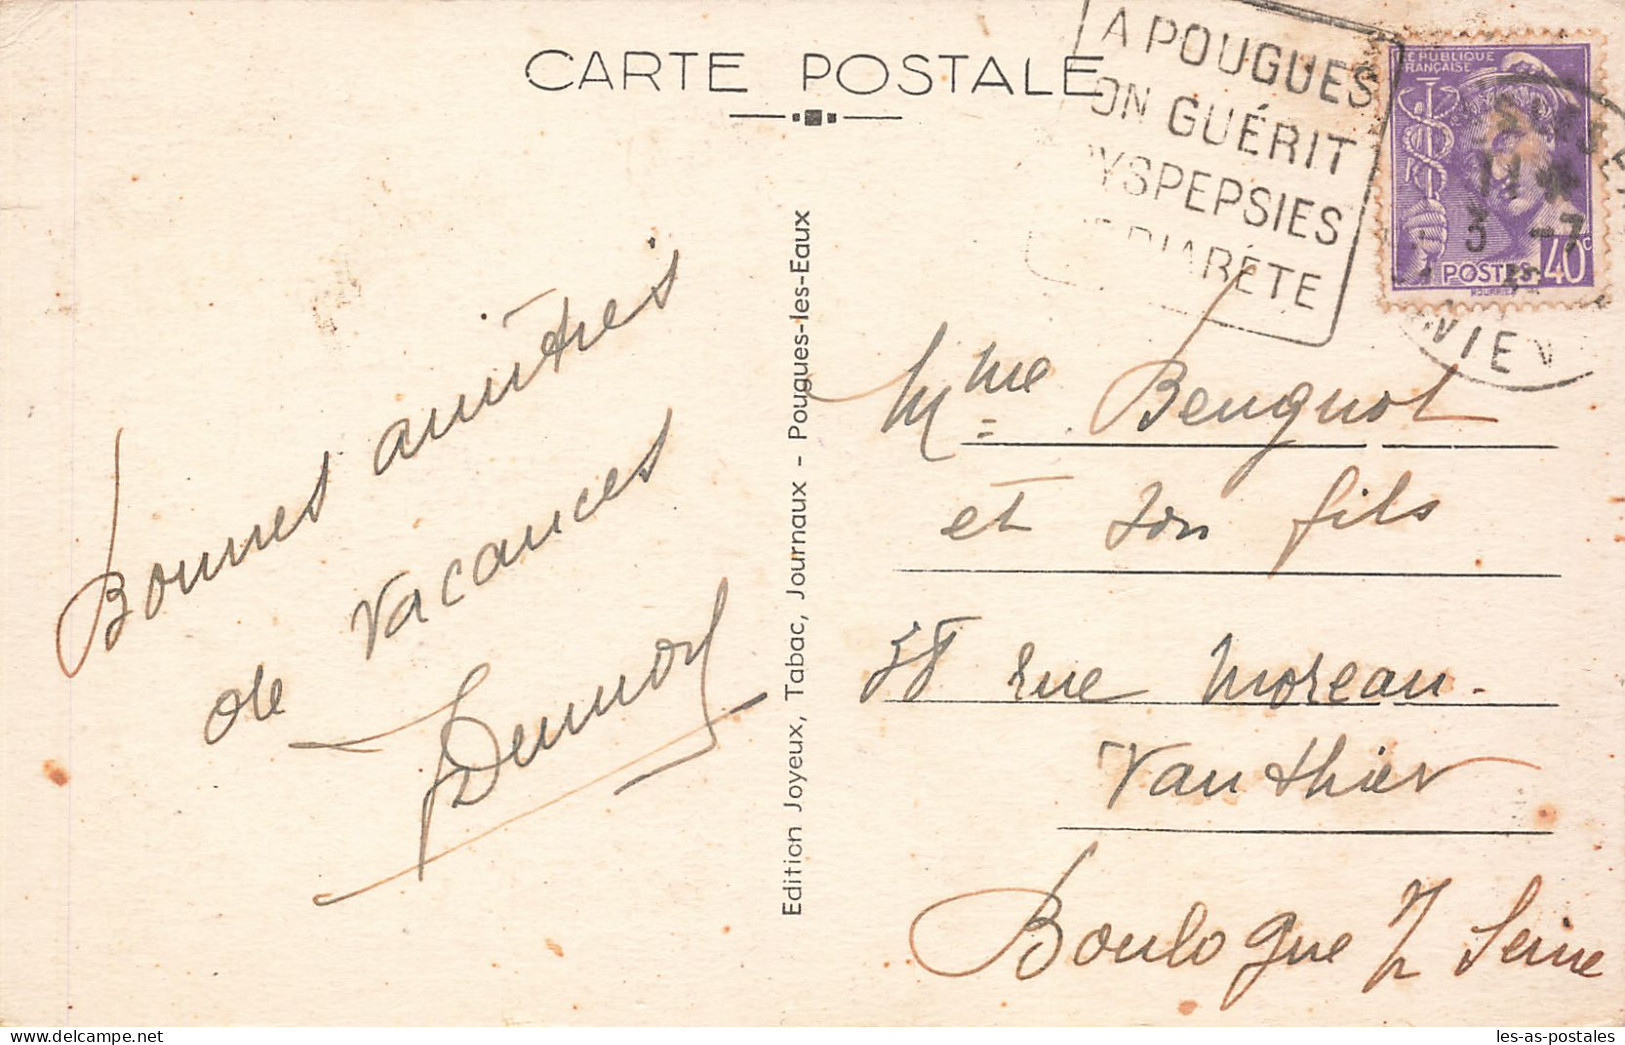 CARTE POSTALE
A POUGUES
ON GUÉRIT
DYSPEPSIES
DIABÈTE
RÉPUBLIQUE
FRANÇAISE
RF
POSTES 40c
11 *
3 -7
NIEV
Bonnes amitiés
de vacances
Edition Joyeux, Tabac, Journaux - Pougues-les-Eaux
Mme Beugnot
et son fils
rue Moreau
Vauthier
Boulogne s/ Seine
www.delcampe.net
les-as-postales